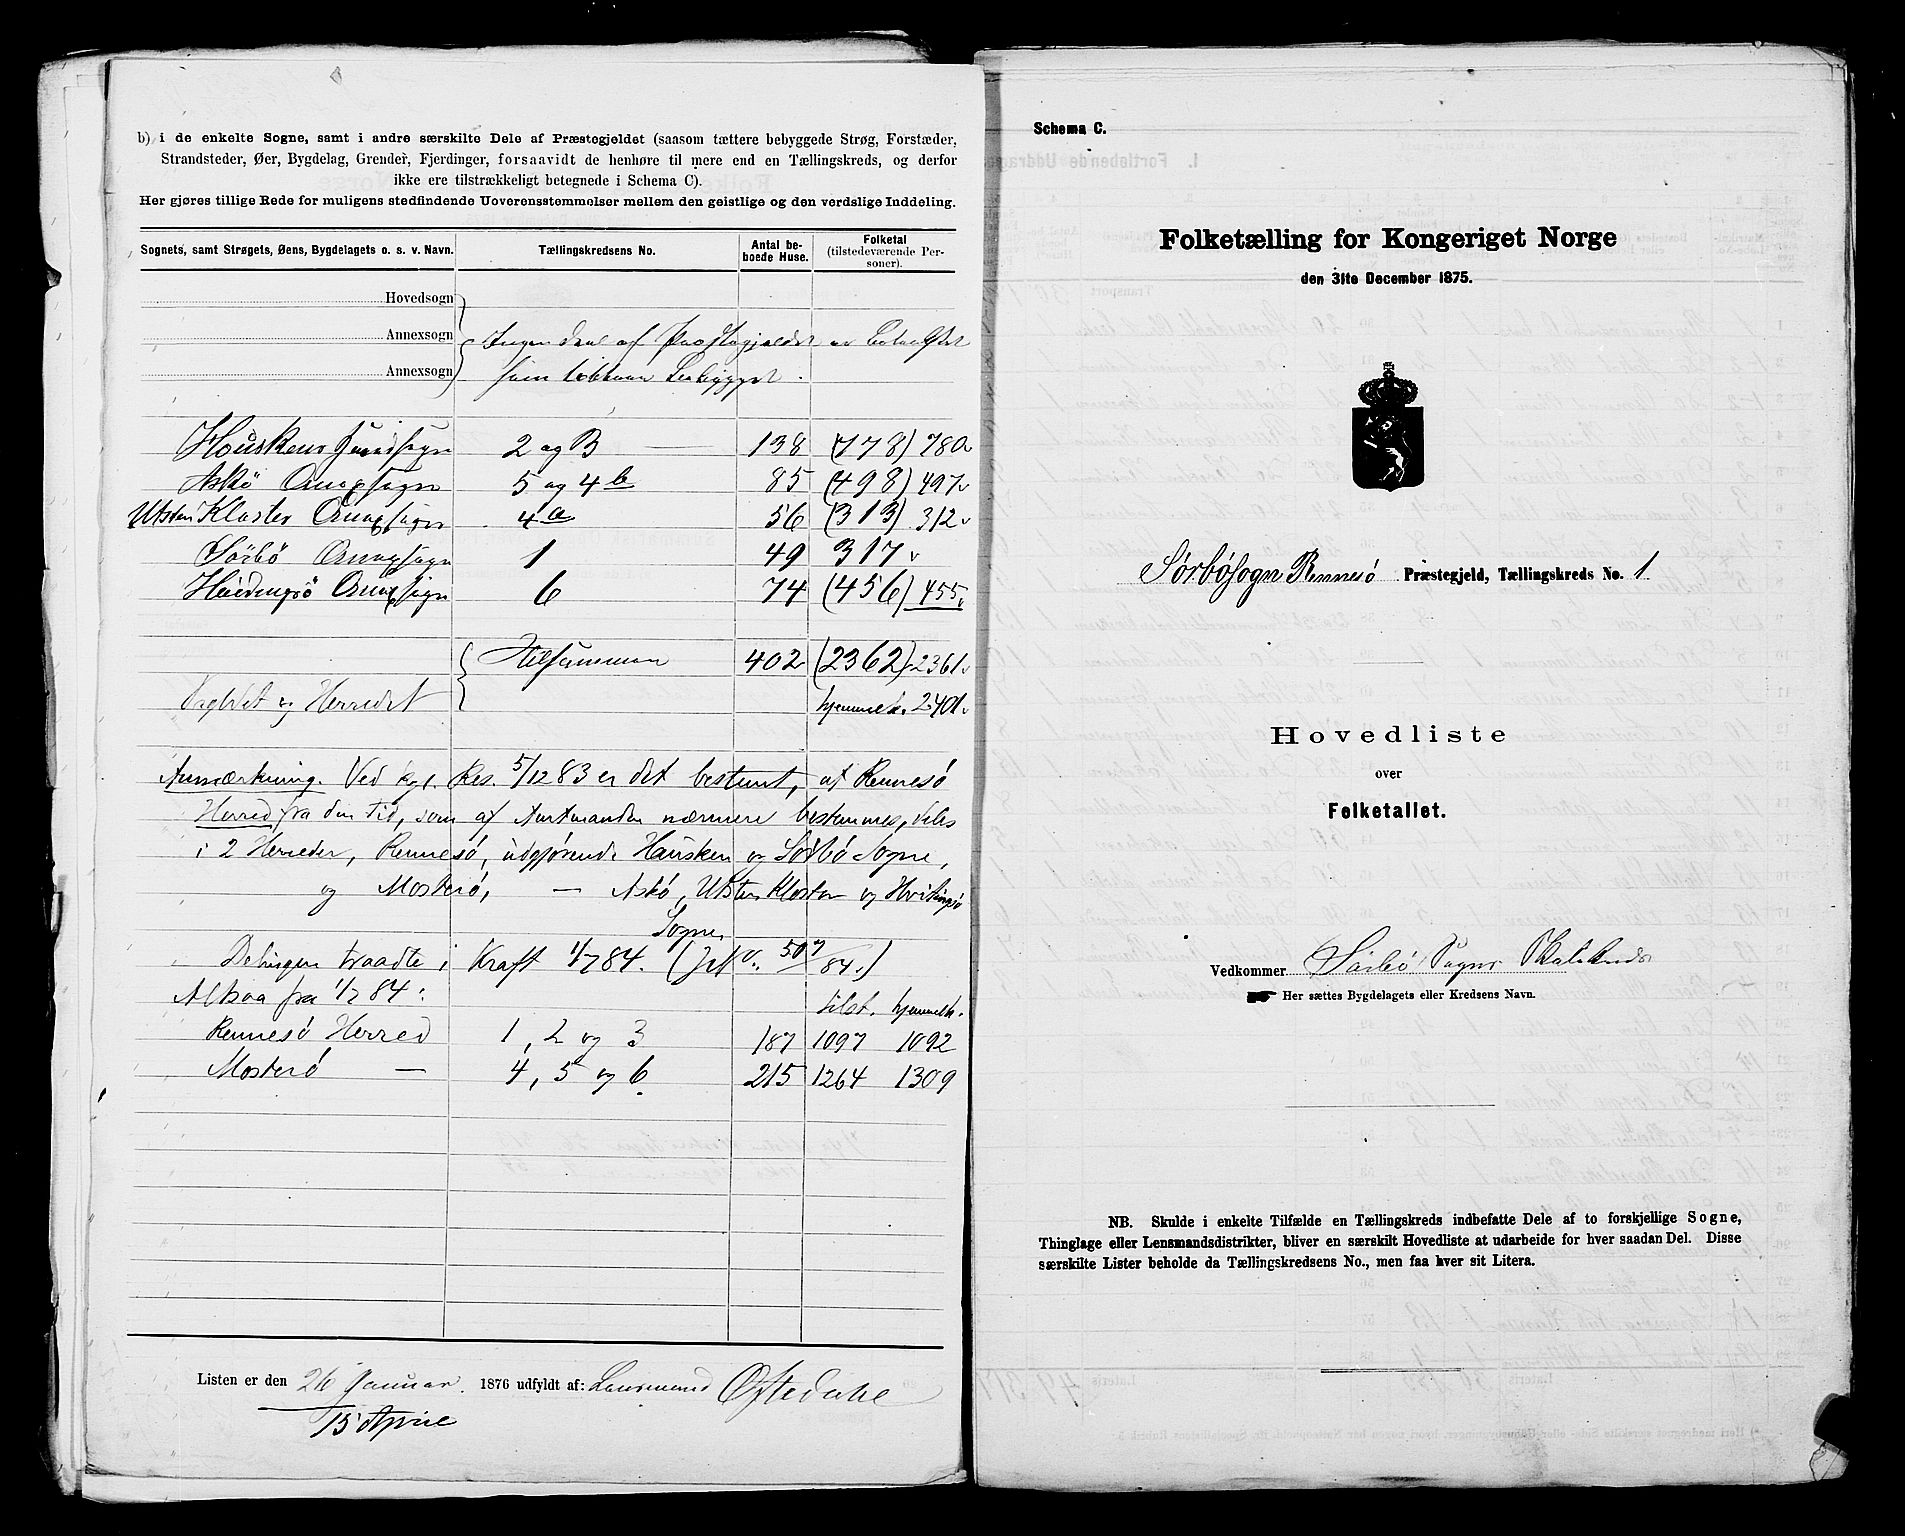 b) i de enkelte Sogne, samt i andre særskilte Dele af Præstegjeldet (saasom tættere bebyggede Strøg, Forstæder,
Strandsteder, Øer, Bygdelag, Grender, Fjerdinger, forsaavidt de henhøre til mere end en Tællingskreds, og derfor
ikke ere tilstrækkeligt betegnede i Schema C).
Her gjøres tillige Rede for muligens stedfindende Uoverensstemmelser mellem den geistlige og den verdslige Inddeling.
Sognets, samt Strøgets, Øens, Bygdelagets o. s. v. Navn. Tællingskredsens No. Antal beboede Huse. Folketal (tilstedeværende Personer).
Hovedsogn
Annexsogn Ingen Deel af Præstegjeldet er
Annexsogn som bebygget.
Houskens 2 og 3 138 (778) 780
Askö Annexsogn 5 og 4b 85 (498) 497
Utsten Kloster Annexsogn 4a 56 (313) 312
Sörbö Annexsogn 1 49 317
Annexsogn 6 74 (456) 455
Tilsammen 402 (2362) 2361
og Herredet hjemmeh. 2401
Anmærkning. Ved kgl. Res. 5/12 83 er det bestemt, at Rennesö
Herred fra den tid, som af Amtmanden nærmere bestemmes, deles
i 2 Herreder, Rennesö, udgjørende Hausken og Sörbö Sogne,
og Mosterö, — Askö, Utsten Kloster og Hvitingsö
Sogne
Delingen traadte i Kraft 1/7 84. (Jrk. 507/84.)
Altsaa fra 1/7 84: tilst. hjemmeh.
Rennesö Herred 1, 2 og 3 187 1097 1092
Mosterö — 4, 5 og 6. 215 1264 1309
Listen er den 26 Januar 1876 udfyldt af: Lensmand Oftedahl
15 April
Schema C.
Folketælling for Kongeriget Norge
den 31te December 1875.
Sørbö sogn Rennesö Præstegjeld, Tællingskreds No. 1
Hovedliste
over
Folketallet.
Vedkommer Sörbö Sogns
Her sættes Bygdelagets eller Kredsens Navn.
NB. Skulde i enkelte Tilfælde en Tællingskreds indbefatte Dele af to forskjellige Sogne,
Thinglage eller Lensmandsdistrikter, bliver en særskilt Hovedliste at udarbeide for hver saadan Del. Disse
særskilte Lister beholde da Tællingskredsens No., men faa hver sit Litera.